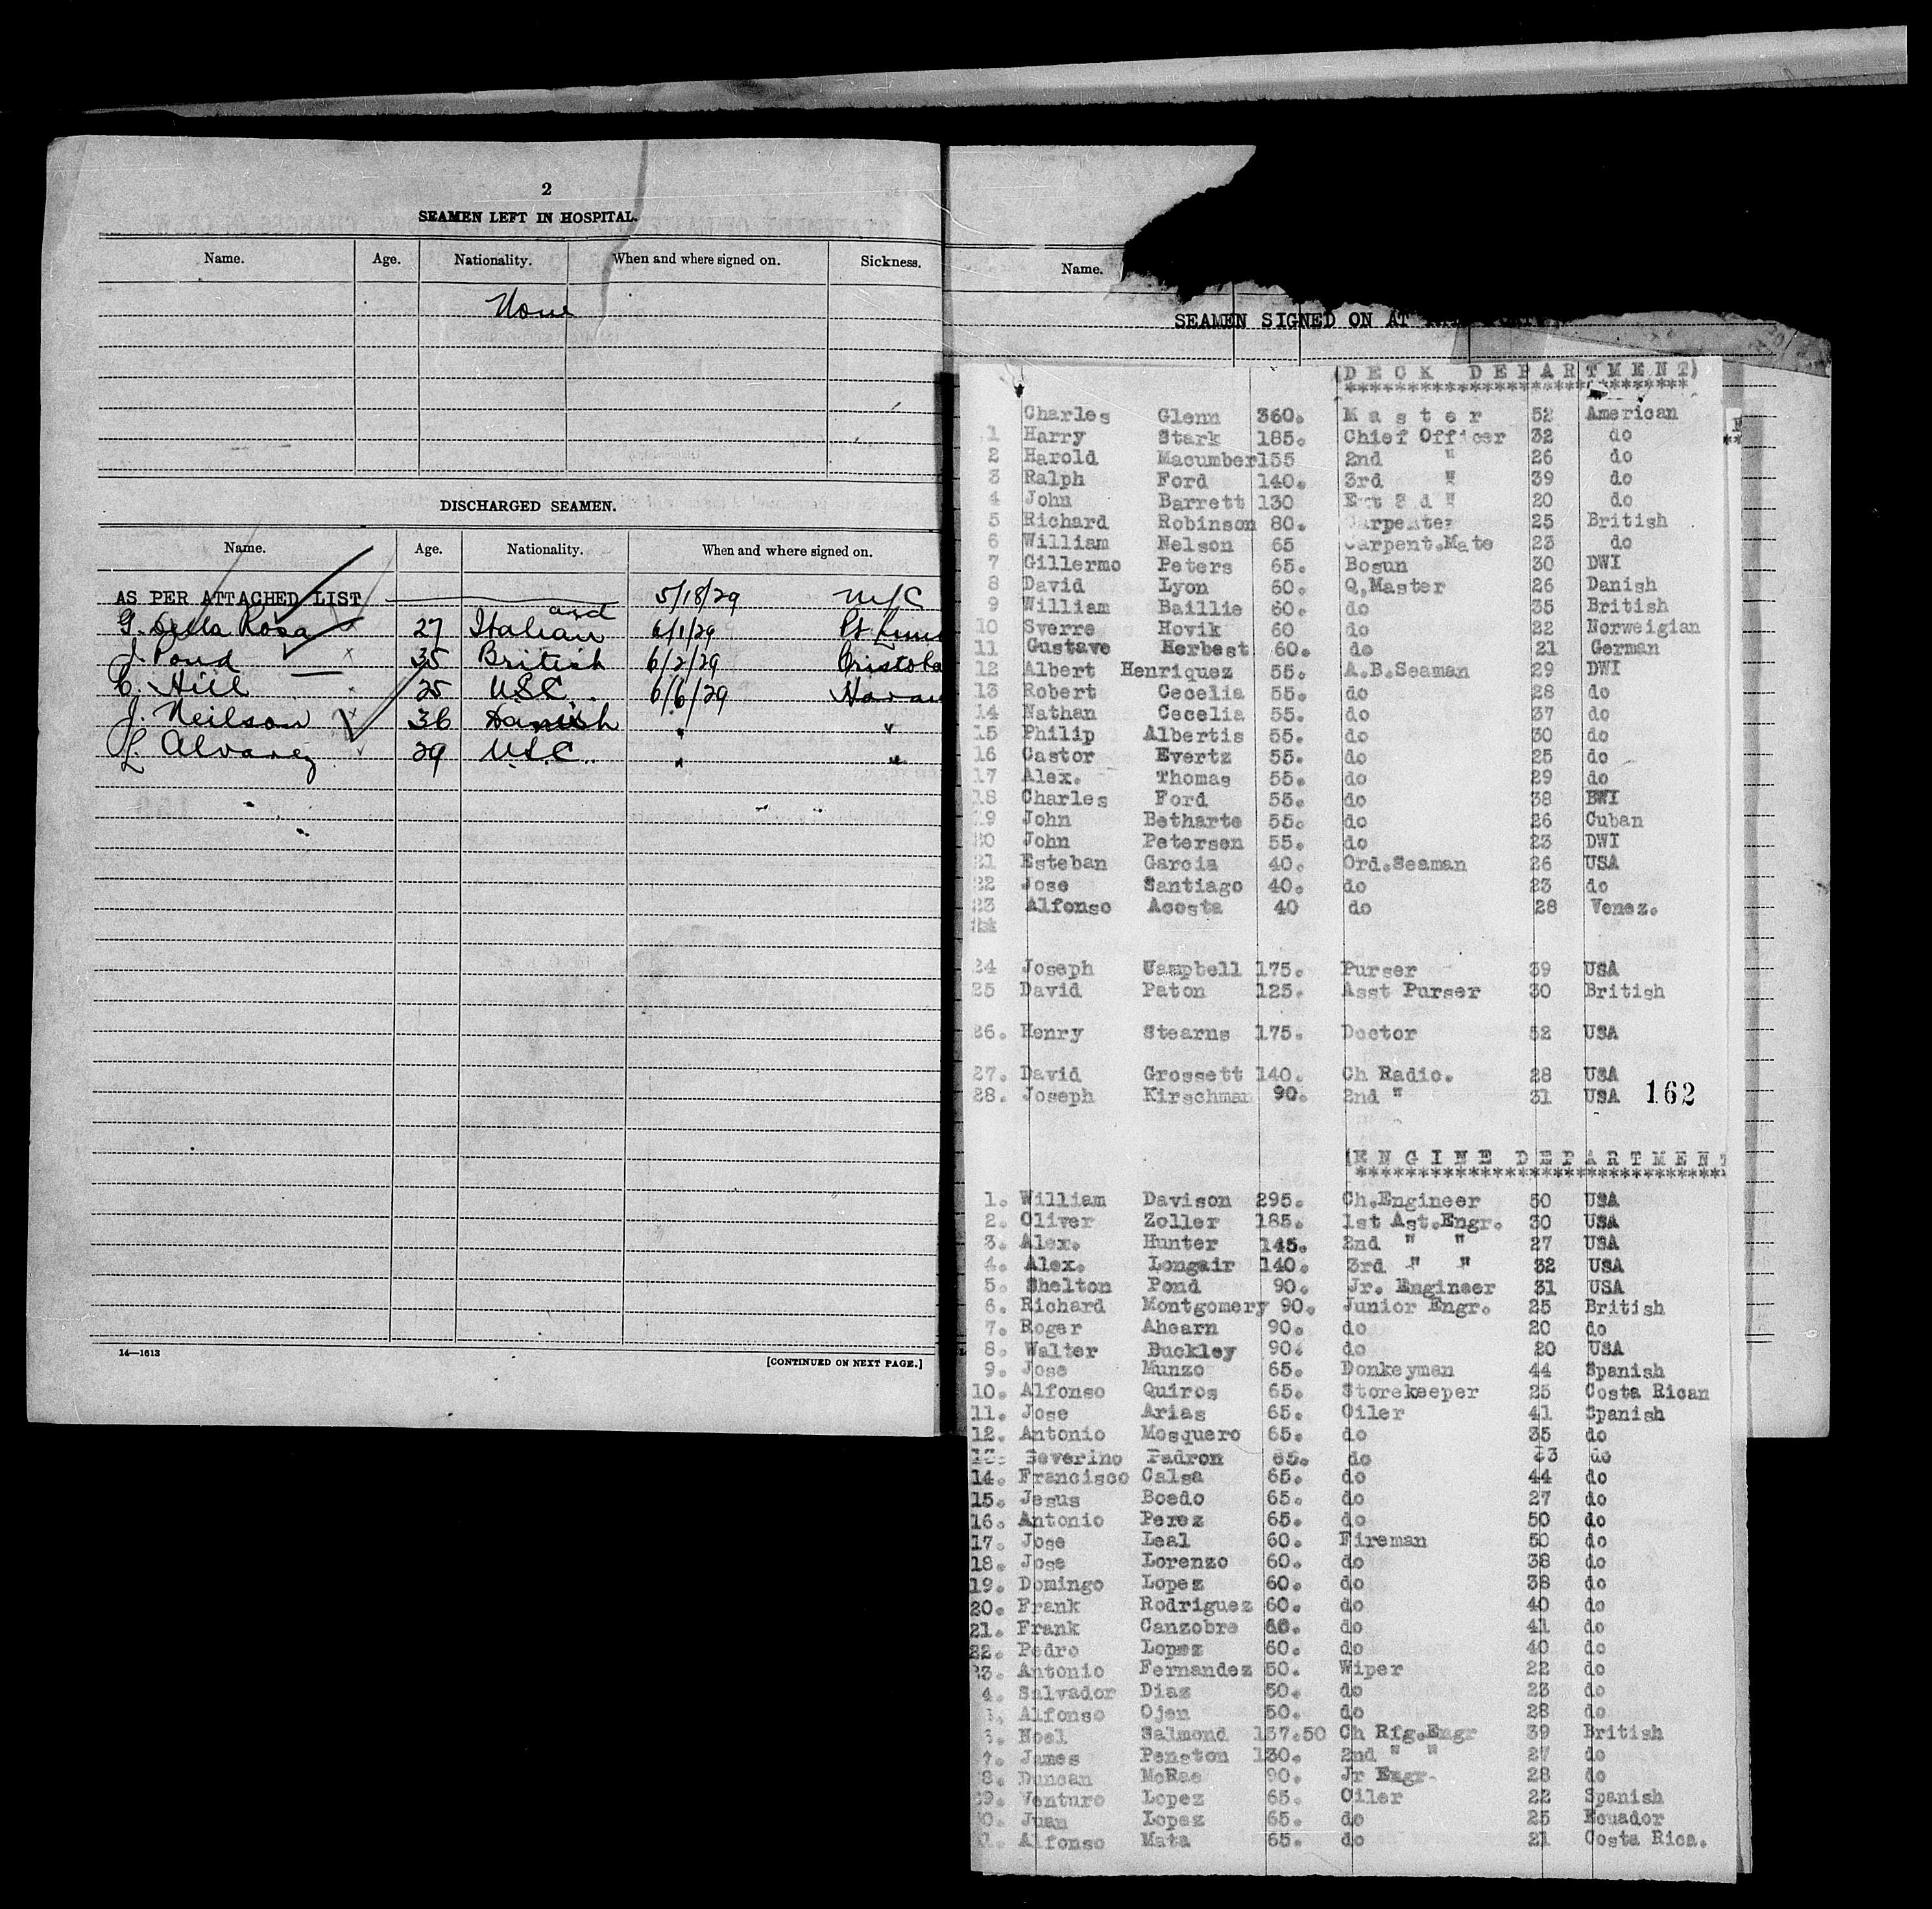 2
SEAMEN LEFT IN HOSPITAL.
Name. Age. Nationality. When and where signed on. Sickness.
None
DISCHARGED SEAMEN.
Name. Age. Nationality. When and where signed on.
AS PER ATTACHED LIST 5/18/29 N/C
and
G. Della Rosa 27 Italian 6/1/29 Pt
J. Pond 35 British 6/2/29 Cristoba
C. Hill 25 USC 6/6/29 Havan
J. Neilson 36 Danish " "
L. Alvarez 29 U.S.C. " "
14—1613
[CONTINUED ON NEXT PAGE.]
Name.
SEAMEN SIGNED ON AT
(DECK DEPARTMENT)
***************************
Charles Glenn 360. Master 52 American
1 Harry Stark 185. Chief Officer 32 do
2 Harold Macumber 155 2nd " 26 do
3 Ralph Ford 140. 3rd " 39 do
4 John Barrett 130 Ext 3 d " 20 do
5 Richard Robinson 80. Carpenter 25 British
6 William Nelson 65 Carpent.Mate 23 do
7 Gillermo Peters 65. Bosun 30 DWI
8 David Lyon 60. Q,Master 26 Danish
9 William Baillie 60. do 35 British
10 Sverre Hovik 60 do 22 Norweigian
11 Gustave Herbest 60. do 21 German
12 Albert Henriquez 55. A.B.Seaman 29 DWI
13 Robert Cecelia 55. do 28 do
14 Nathan Cecelia 55. do 37 do
15 Philip Albertis 55. do 30 do
16 Castor Evertz 55. do 25 do
17 Alex. Thomas 55. do 29 do
18 Charles Ford 55. do 38 BWI
19 John Betharte 55. do 26 Cuban
20 John Petersen 55. do 23 DWI
21 Esteban Garcia 40. Ord.Seaman 26 USA
22 Jose Santiago 40. do 23 do
23 Alfonso Acosta 40 do 28 Venez.
24 Joseph Campbell 175. Purser 39 USA
25 David Paton 125. Asst Purser 30 British
26. Henry Stearns 175. Doctor 52 USA
27. David Grossett 140. Ch Radio. 28 USA
28. Joseph Kirschman 90. 2nd " 31 USA 162
(ENGINE DEPARTMENT
***************************
1. William Davison 295. Ch.Engineer 50 USA
2. Oliver Zoller 185. 1st Ast.Engr. 30 USA
3. Alex. Hunter 145. 2nd " " 27 USA
4. Alex. Longair 140. 3rd " " 32 USA
5. Shelton Pond 90. Jr. Engineer 31 USA
6. Richard Montgomery 90. Junior Engr. 25 British
7. Roger Ahearn 90. do 20 do
8. Walter Buckley 90. do 20 USA
9. Jose Munzo 65. Donkeyman 44 Spanish
10. Alfonso Quiros 65. Storekeeper 25 Costa Rican
11. Jose Arias 65. Oiler 41 Spanish
12. Antonio Mosquero 65. do 35 do
13. Severino Padron 65. do 23 do
14. Francisco Calsa 65. do 44 do
15. Jesus Boedo 65. do 27 do
16. Antonio Perez 65. do 50 do
17. Jose Leal 60. Fireman 50 do
18. Jose Lorenzo 60. do 38 do
19. Domingo Lopez 60. do 38 do
20. Frank Rodriguez 60. do 40 do
21. Frank Canzobre 60. do 41 do
22. Pedro Lopez 60. do 40 do
23. Antonio Fernandez 50. Wiper 22 do
4. Salvador Diaz 50. do 23 do
5. Alfonso Ojen 50. do 28 do
6. Noel Salmond 137.50 Ch Rfg.Engr 39 British
7. James Penston 130. 2nd " " 27 do
8. Duncan McRae 90. Jr Engr. 28 do
29. Venturo Lopez 65. Oiler 22 Spanish
0. Juan Lopez 65. do 25 Ecuador
1. Alfonso Mata 65. do 21 Costa Rica.